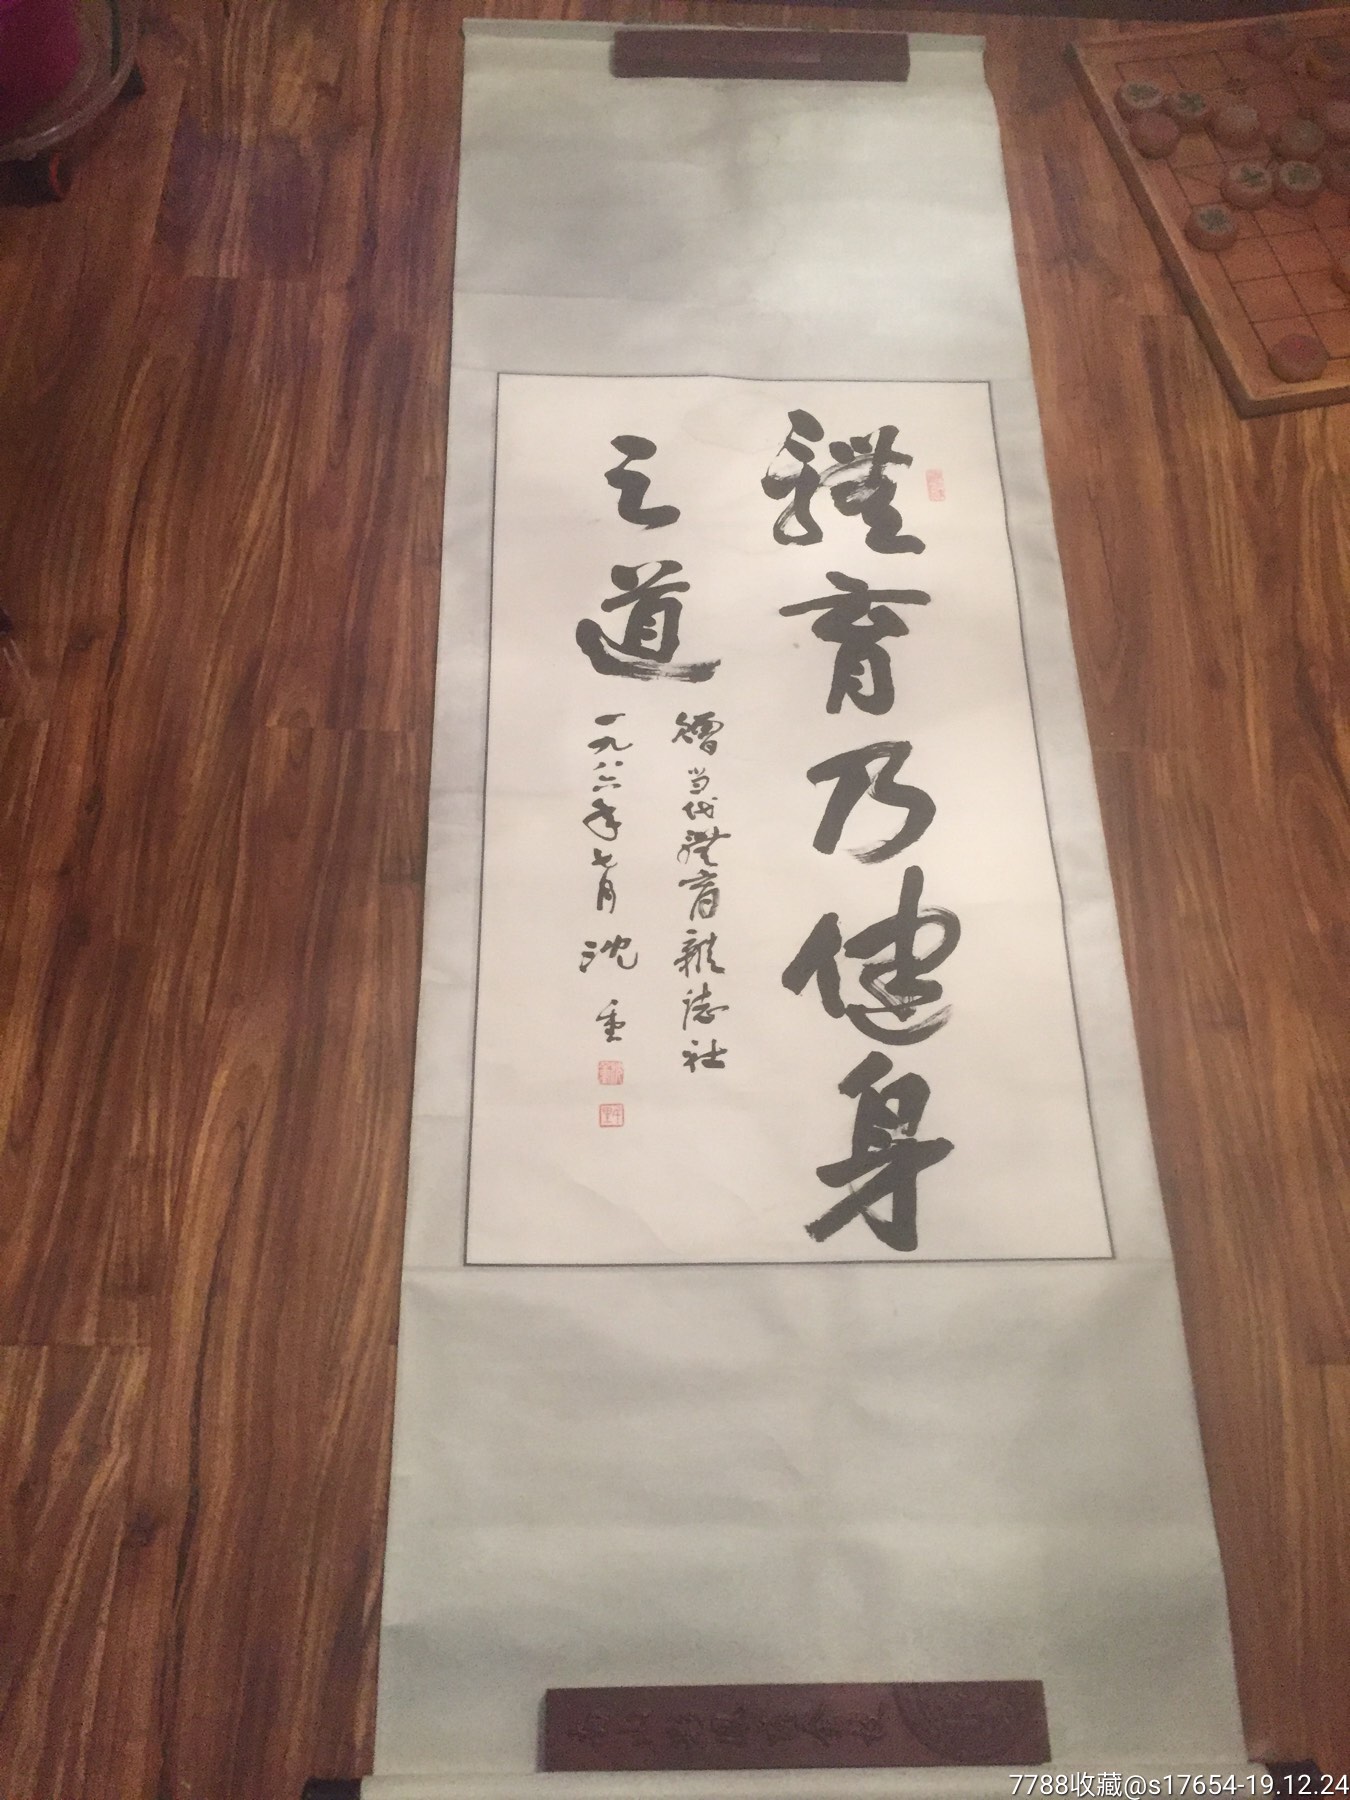 體育乃健身
之道
贈当代體育雜誌社
一九八六年七月 沈重
7788收藏@s17654-19.12.24